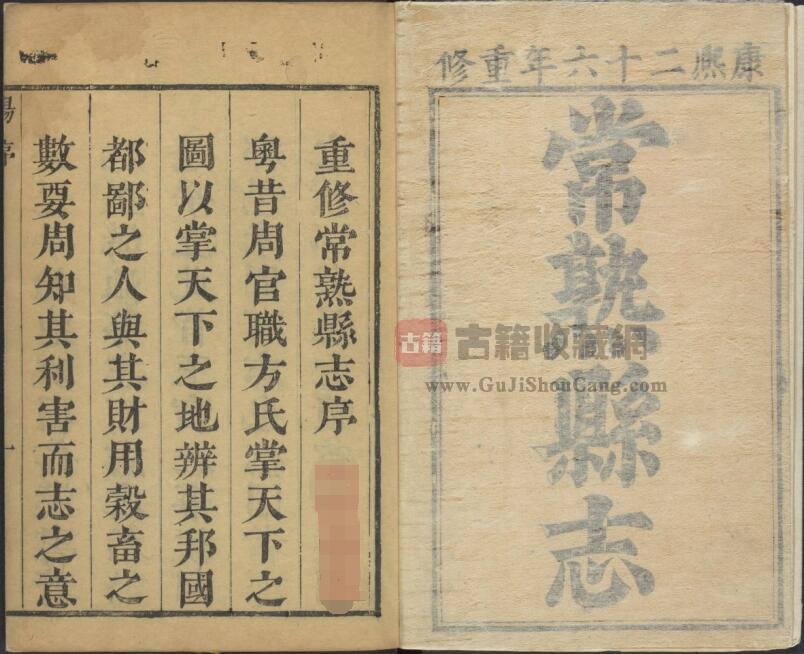 康熙二十六年重修
常熟縣志
重修常熟縣志序
粵昔周官職方氏掌天下之
圖以掌天下之地辨其邦國
都鄙之人與其財用穀畜之
數要周知其利害而志之意
序
一
古籍
古籍收藏網
www.GuJiShouCang.com